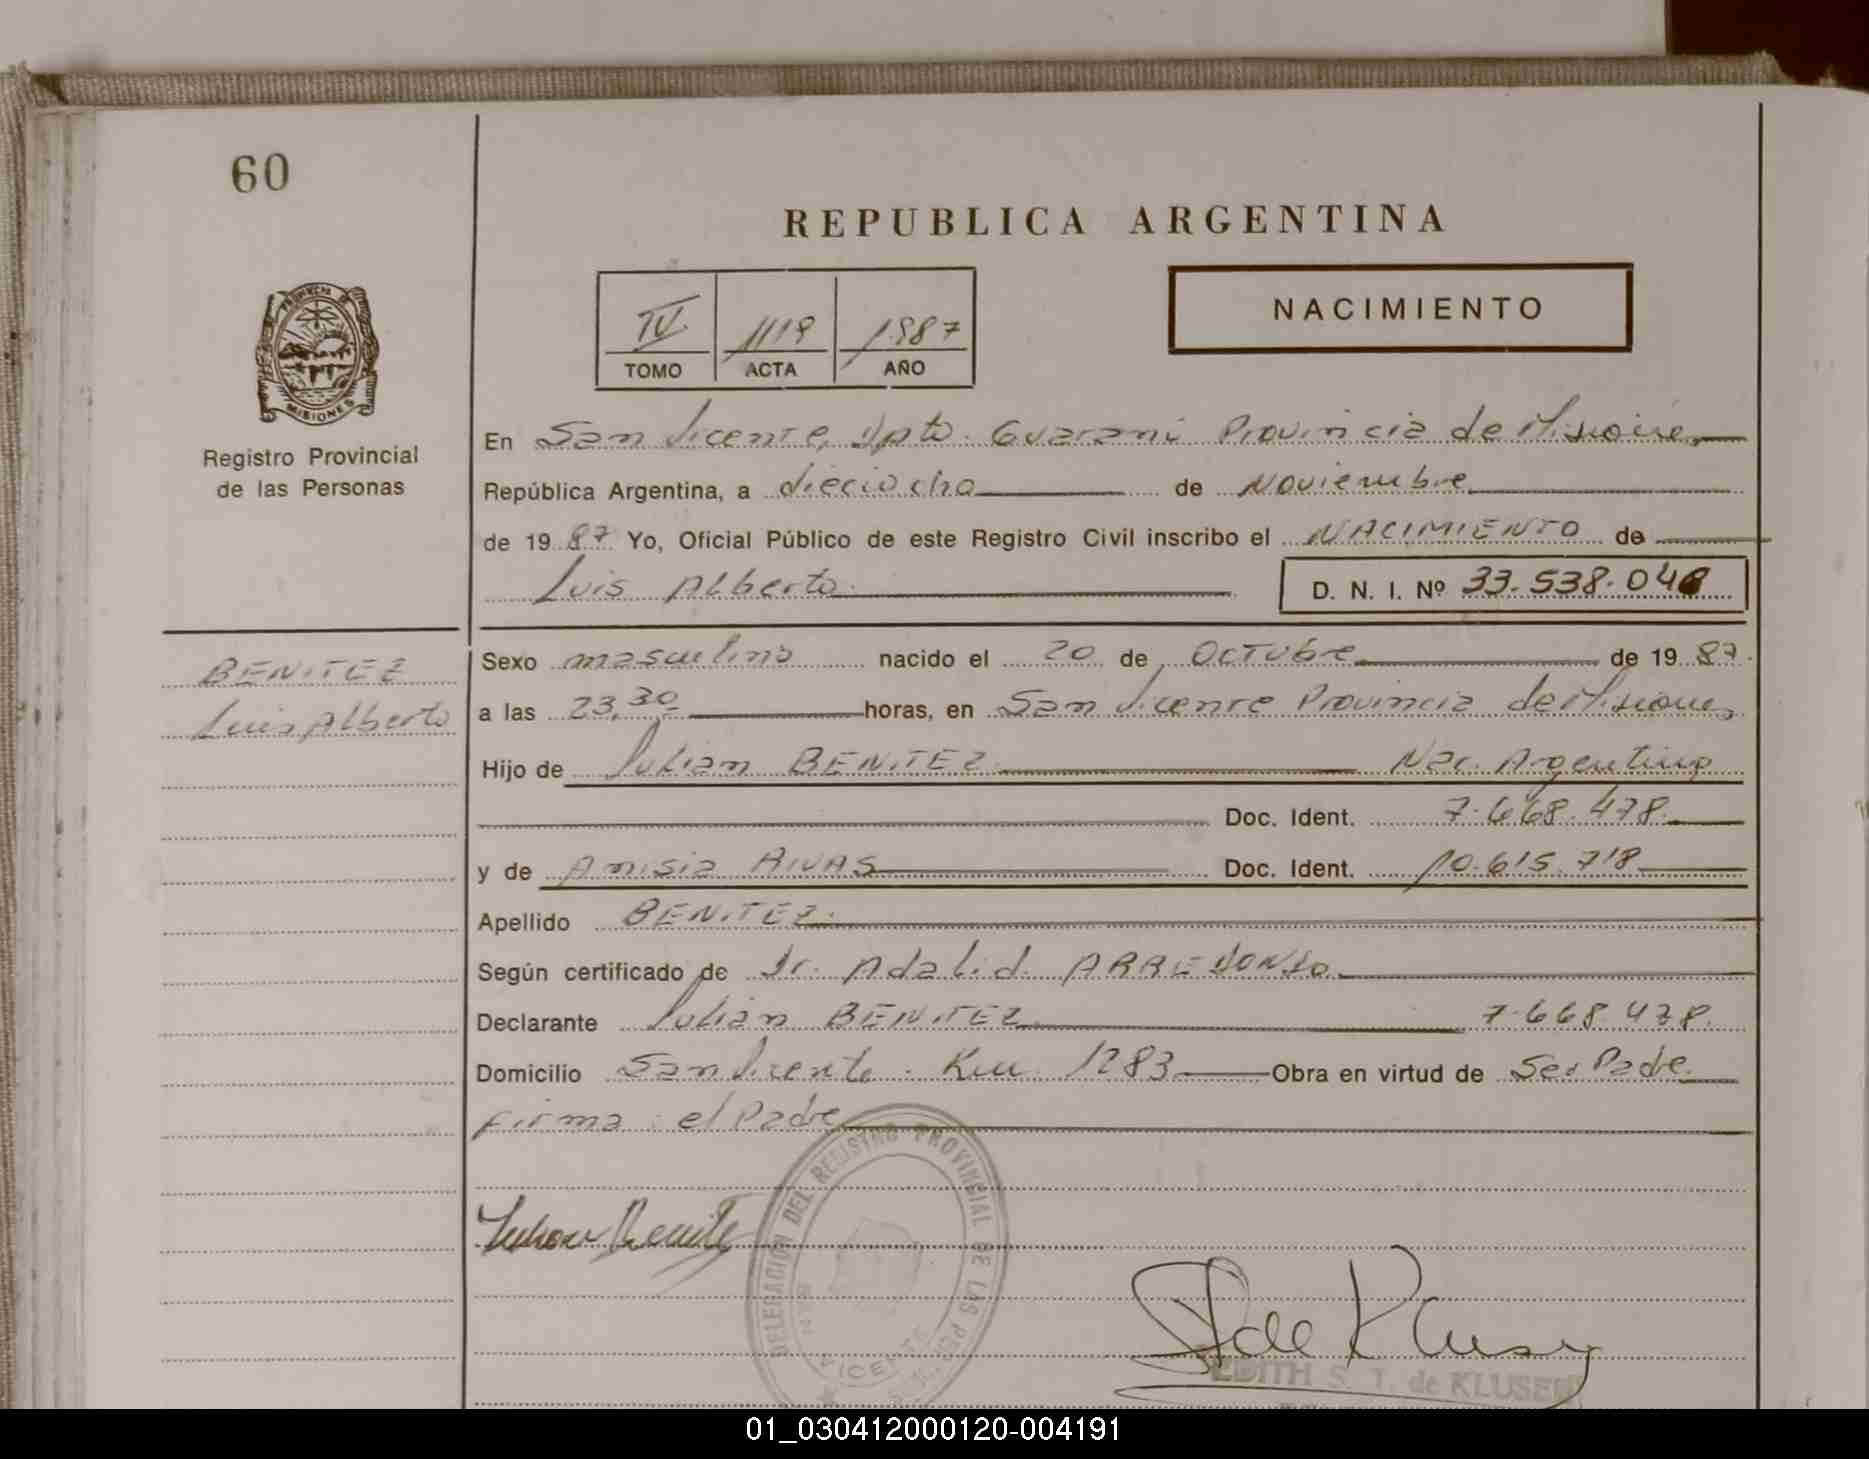 60
REPUBLICA ARGENTINA
NACIMIENTO
IV 1119 1987
TOMO ACTA AÑO
PROVINCIA DE MISIONES
Registro Provincial
de las Personas
En San Vicente, Dpto. Guarani Provincia de Misiones
República Argentina, a dieciocho de Noviembre
de 19 87 Yo, Oficial Público de este Registro Civil inscribo el NACIMIENTO de
Luis Alberto D. N. I. Nº 33.538.04
BENITEZ
Luis Alberto
Sexo masculino nacido el 20 de Octubre de 19 87
a las 23,30 horas, en San Vicente Provincia de Misiones
Hijo de Julian BENITEZ Nac. Argentino
Doc. Ident. 7.668.478.
y de Amisia RIVAS Doc. Ident. 10.615.718
Apellido BENITEZ.
Según certificado de Dr. Adalid ARREDONDO
Declarante Julian BENITEZ 7.668.478.
Domicilio San Vicente. Km. 1283 Obra en virtud de Ser Padre
firma: el Padre
Julian Benitez
DELEGACION DEL REGISTRO PROVINCIAL DE LAS PER
VICENTE
S de Klusen
EDITH S. T. de KLUSEN
01_030412000120-004191